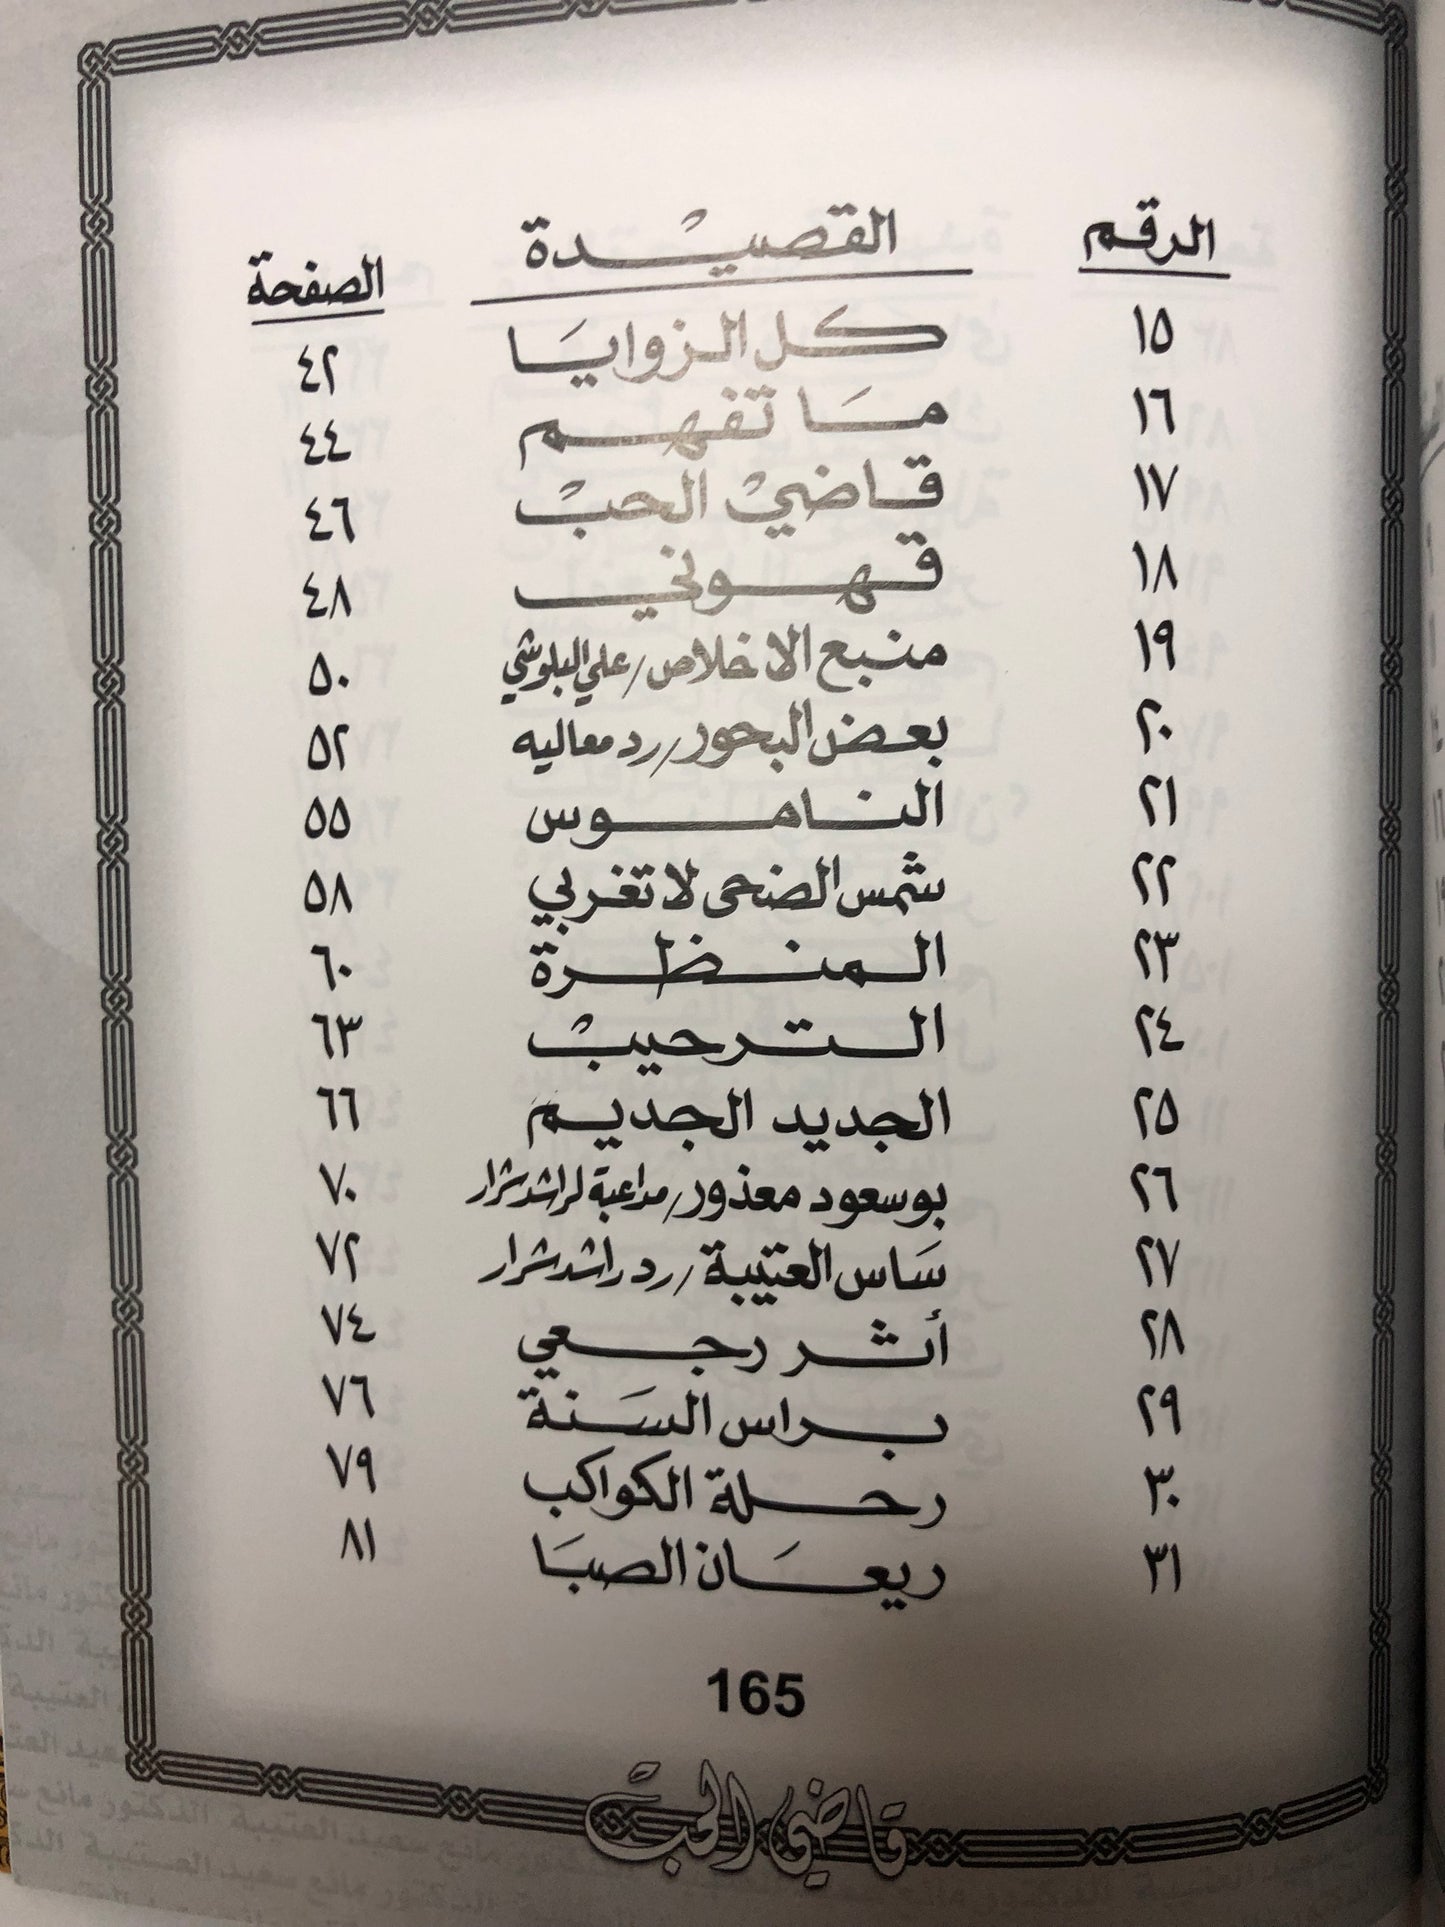 الرقم القصيدة الصفحة
١٥ كل الزوايا ٤٢
١٦ ما تفهم ٤٤
١٧ قاضي الحب ٤٦
١٨ قهوني ٤٨
١٩ منبع الاخلاص/علي البلوشي ٥٠
٢٠ بعض البحور/رد معاليه ٥٢
٢١ الناموس ٥٥
٢٢ شمس الضحى لا تغربي ٥٨
٢٣ المنظرة ٦٠
٢٤ الترحيب ٦٣
٢٥ الجديد الجديم ٦٦
٢٦ بوسعود معذور/مداعبة لراشد شرار ٧٠
٢٧ ساس العتيبة/رد راشد شرار ٧٢
٢٨ أثر رجعي ٧٤
٢٩ براس السنة ٧٦
٣٠ رحلة الكواكب ٧٩
٣١ ريعان الصبا ٨١
165
قاضي الحب